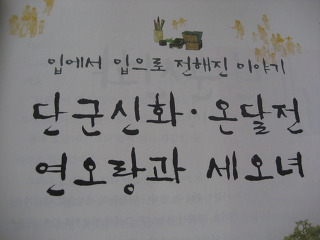 입에서 입으로 전해진 이야기
단군신화·온달전
연오랑과 세오녀